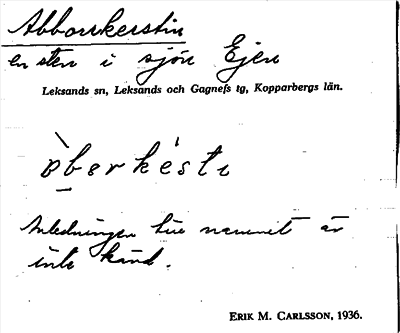 Abborrkerstin
en sten i sjön Ejen
Leksands sn, Leksands och Gagnefs tg, Kopparbergs län.
òberkésti
Anledningen till namnet är
inte känd.
ERIK M. CARLSSON, 1936.